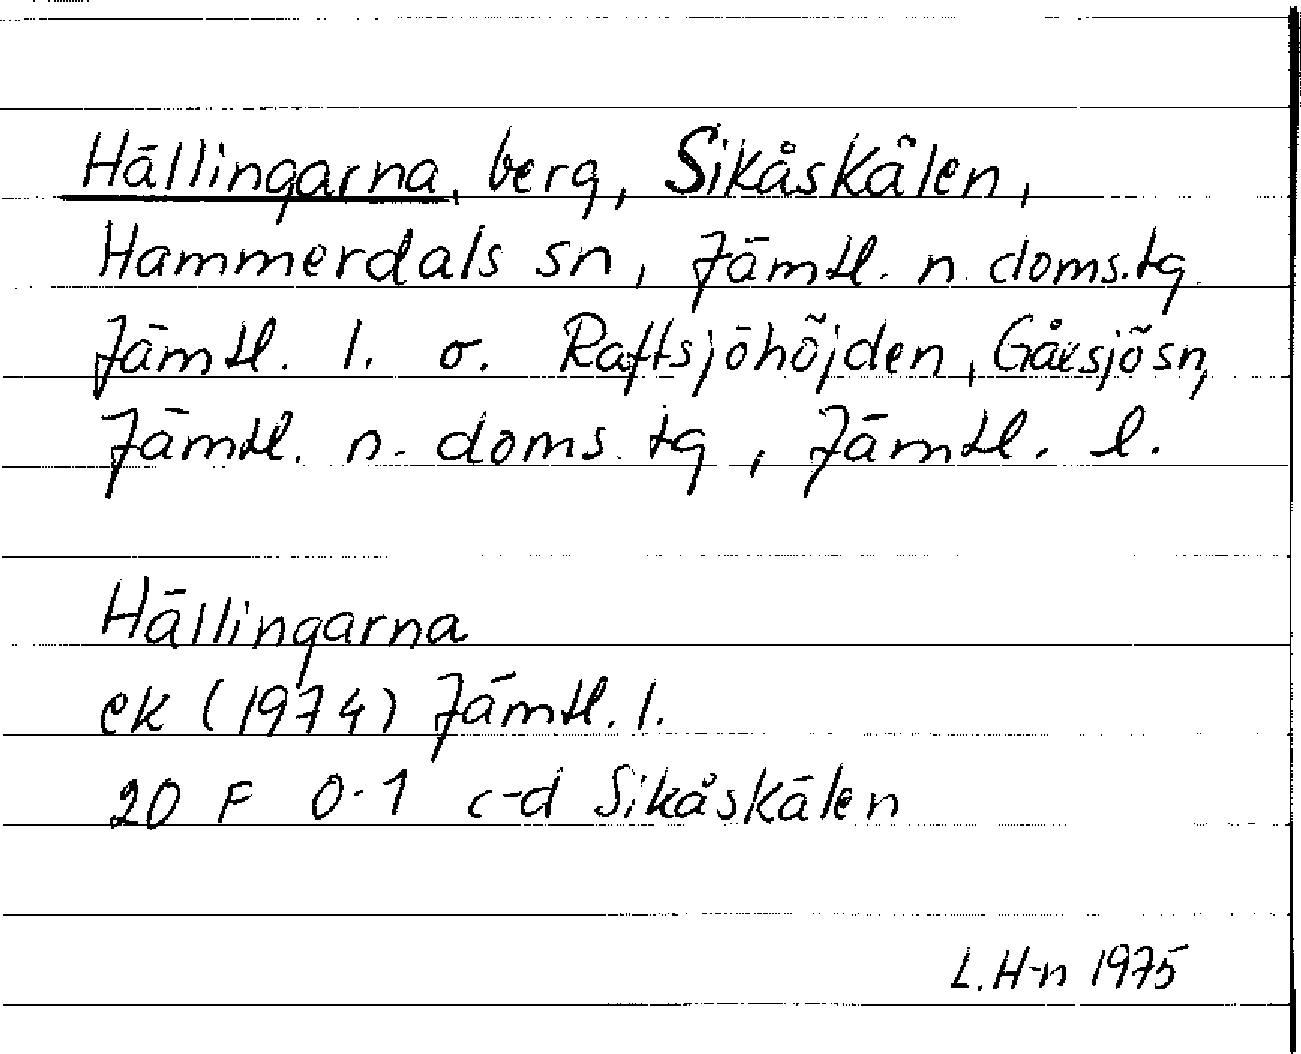 Hällingarna, berg, Sikåskälen,
Hammerdals sn, Jämtl. n. doms.tg.
Jämtl. l. o. Raftsjöhöjden, Gåxsjö sn,
Jämtl. n. doms. tg, Jämtl. l.
Hällingarna
ek (1974) Jämtl. l.
20 F 0-1 c-d Sikåskälen
L. H-n 1975